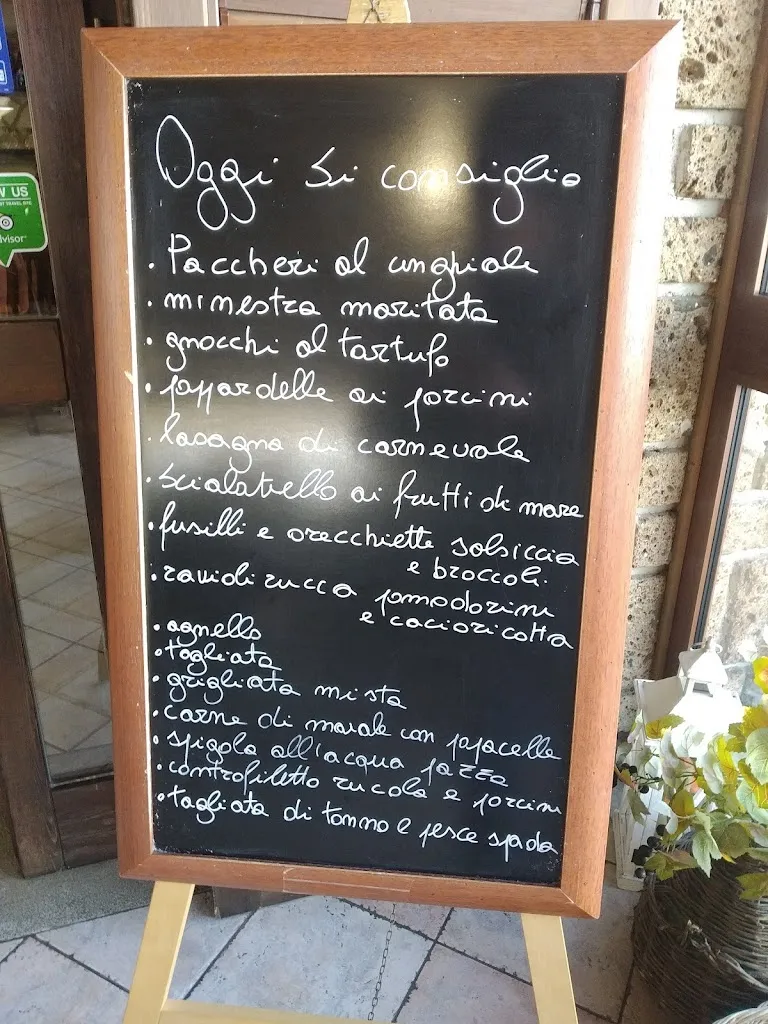 W US
dvisor
Oggi si consiglia
• Paccheri al cinghiale
• minestra maritata
• gnocchi al tartufo
• pappardelle ai porcini
• lasagna di carnevale
• Scialatiello ai frutti di mare
• fusilli e orecchiette salsiccia
e broccoli.
• ravioli zucca pomodorini
e cacioricotta
• agnello
• tagliata
• grigliata mista
• carne di maiale con papacelle
• spigola all'acqua pazza
• controfiletto rucola e porcini
• tagliata di tonno e pesce spada